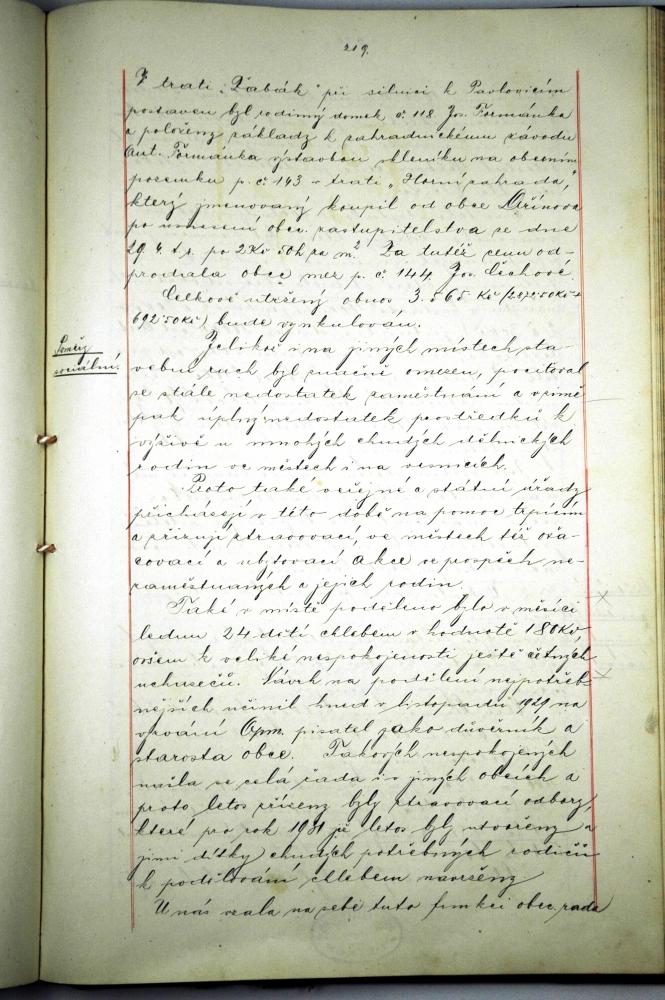 219.
V trati „Žabák" při silnici k Pavlovicím
postaven byl rodinný domek č. 118 Jos. Formánka
a položeny základy k zahradnickému závodu
Ant. Formánka výstavbou skleníku na obecním
pozemku p. č. 143 v trati „Horní zahrada",
který jmenovaný koupil od obce Dřínova
po usnesení obec. zastupitelstva ze dne
29. 4. t. r. po 2 Kč 50 h za m². Za tutéž cenu od-
prodala obec mez p. č. 144 Jos. Čechové
Celkově utržený obnos 3.565 Kč (2872·50 Kč +
692·50 Kč) bude vynkulován.
Poměry
sociální.
Jelikož i na jiných místech sta-
vební ruch byl značně omezen, pociťoval
se stále nedostatek zaměstnání a v zimě
pak úplný nedostatek prostředků k
výživě u mnohých chudých dělnických
rodin ve městech i na vesnicích.
Proto také veřejné a státní úřady
přicházejí v této době na pomoc trpícím
a zřizují stravovací, ve městech též oša-
covací a ubytovací akce ve prospěch ne-
zaměstnaných a jejich rodin.
Také v místě poděleno bylo v měsíci
lednu 24 dětí chlebem v hodnotě 180 Kč,
ovšem k veliké nespokojenosti ještě četných
uchazečů. Návrh na podělení nejpotřeb-
nějších učinil hned v listopadu 1929 na
vyzvání Opm. pisatel jako důvěrník a
starosta obce. Takových nespokojených
našla se celá řada i v jiných obcích a
proto letos zřízeny byly stravovací odbory,
které pro rok 1931 již letos byly utvořeny a
jimi dítky chudých potřebných rodičů
k podělování chlebem navrženy
U nás vzala na sebe tuto funkci obec. rada